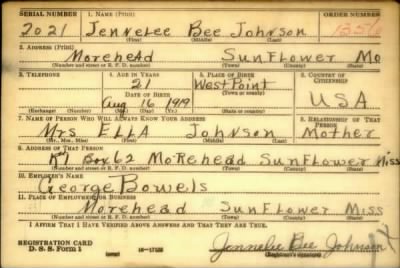 SERIAL NUMBER 1. NAME (Print) ORDER NUMBER
2021 Jennelee Bee Johnson
(First) (Middle) (Last)
2. ADDRESS (Print)
Morehead Sunflower Mo
(Number and street or R. F. D. number) (Town) (County) (State)
3. TELEPHONE 4. AGE IN YEARS 5. PLACE OF BIRTH 6. COUNTRY OF CITIZENSHIP
21 West Point
DATE OF BIRTH (Town or county)
Aug 16 1919 USA
(Exchange) (Number) (Mo.) (Day) (Yr.) (State or country)
7. NAME OF PERSON WHO WILL ALWAYS KNOW YOUR ADDRESS 8. RELATIONSHIP OF THAT PERSON
Mrs Ella Johnson Mother
(Mr., Mrs., Miss) (First) (Middle) (Last)
9. ADDRESS OF THAT PERSON
Box 62 Morehead Sunflower Miss
(Number and street or R. F. D. number) (Town) (County) (State)
10. EMPLOYER'S NAME
George Bowels
11. PLACE OF EMPLOYMENT OR BUSINESS
Morehead Sunflower Miss
(Number and street or R. F. D. number) (Town) (County) (State)
I AFFIRM THAT I HAVE VERIFIED ABOVE ANSWERS AND THAT THEY ARE TRUE.
REGISTRATION CARD
D. S. S. FORM 1 16-17105 Jennelie Bee Johnson
(Registrant's signature)